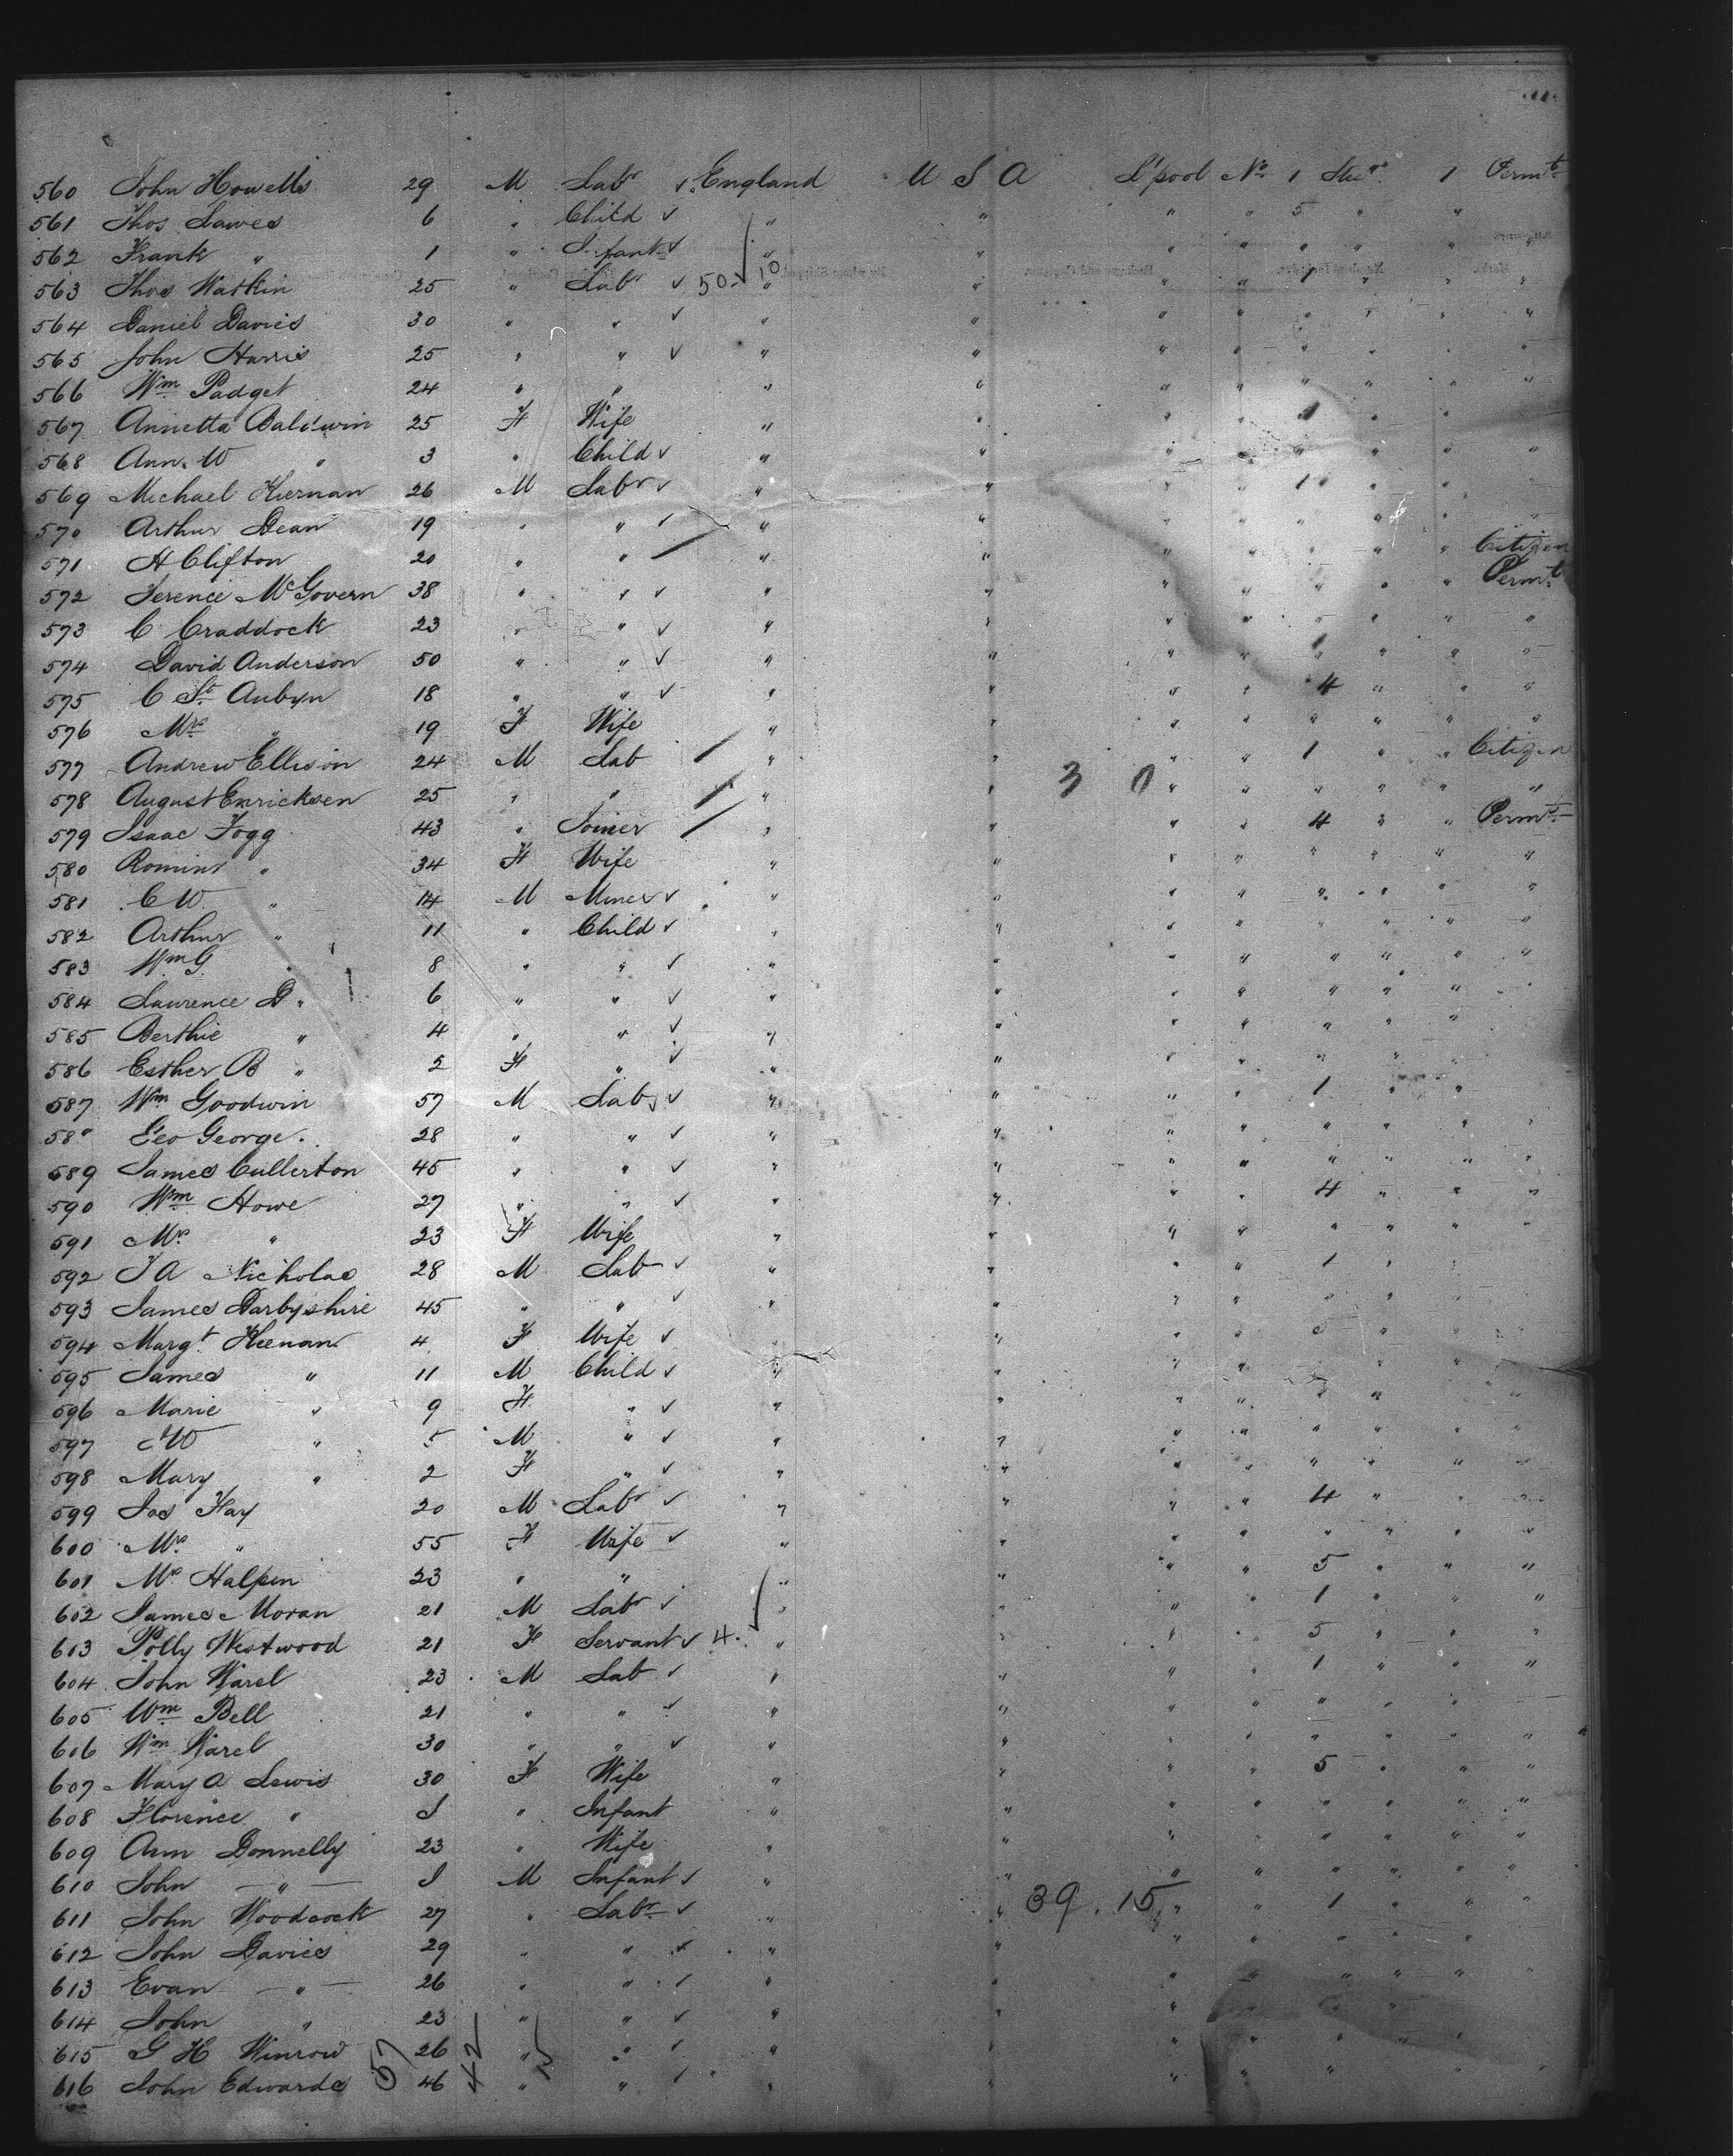 560 John Howells 29 M Labr ✓ England U S A L'pool No 1 1 Permt
561 Thos Lawes 6 " Child ✓ " " " " 5 " "
562 Frank " 1 " Infant ✓ " " " " " " "
563 Thos Watkin 25 " Labr ✓ 50 ✓ 10 " " " " 1 " " "
564 Daniel Davies 30 " " ✓ " " " " " " " "
565 John Harris 25 " " ✓ " " " " " " " "
566 Wm Padget 24 " " " " " " " " " "
567 Annetta Baldwin 25 F Wife " " " " " "
568 Ann. W " 3 " Child ✓ " " " " " " " "
569 Michael Kiernan 26 M Labr ✓ " " " " 1 " "
570 Arthur Dean 19 " " ✓ " " " " " " " "
571 H Clifton 20 " " " " " " " " " Citizen
572 Terence McGovern 38 " " ✓ " " " " " " " Permt
573 C Craddock 23 " " ✓ " " " " " " " "
574 David Anderson 50 " " ✓ " " " " 1 " " "
575 C St Aubyn 18 " " ✓ " " " " 4 " " "
576 Mrs " 19 F Wife " " " " " " " "
577 Andrew Ellison 24 M Lab " 3 0 " " 1 " " Citizen
578 August Enricksen 25 " " " " " " " " " "
579 Isaac Fogg 43 " Joiner " " " " 4 " " Permt
580 " 34 F Wife " " " " " " " "
581 C W. " 14 M Miner ✓ " " " " " " " "
582 Arthur " 11 " Child ✓ " " " " " " " "
583 Wm G. " 8 " " ✓ " " " " " " " "
584 Lawrence D " 6 " " ✓ " " " " " " " "
585 Berthie " 4 " " ✓ " " " " " " "
586 Esther B " 2 F " ✓ " " " " " " "
587 Wm Goodwin 57 M Lab ✓ " " " " 1 " "
58 Geo George. 28 " " ✓ " " " " " " " "
589 James Cullerton 45 " " ✓ " " " " " " " "
590 Wm Howe 27 " " ✓ " " " " 4 " " "
591 Mrs " 23 F Wife " " " " " " " "
592 J A Nicholas 28 M Lab ✓ " " " " 1 " "
593 James Darbyshire 45 " " ✓ " " " " " " "
594 Margt Keenan 4 F Wife ✓ " " " " 5 " "
595 James " 11 M Child ✓ " " " " " " "
596 Marie " 9 F " ✓ " " " " " " "
597 W " 5 M " ✓ " " " " " " "
598 Mary " 2 F " ✓ " " " " " " " "
599 Jos Hay 20 M Labr ✓ " " " " 4 " "
600 Mrs " 55 F Wife ✓ " " " " " " " "
601 Mrs Halpin 23 " " " " " " 5 " " "
602 James Moran 21 M Labr ✓ " " " " 1 " " "
603 Polly Westwood 21 F Servant ✓ 4. ✓ " " " " 5 " " "
604 John Warel 23 M Lab ✓ " " " " 1 " " "
605 Wm Bell 21 " " ✓ " " " " " " " "
606 Wm Warel 30 " " ✓ " " " " " " " "
607 Mary A Lewis 30 F Wife " " " " 5 " " "
608 Florence " " Infant " " " " " " " "
609 Ann Donnelly 23 " Wife " " " " " " " "
610 John " M Infant ✓ " " " " " " " "
611 John Woodcock 27 " Labr ✓ " " 39. 15 " " 1 " "
612 John Davies 29 " " ✓ " " " " " " "
613 Evan " 26 " " ✓ " " " " " " "
614 John " 23 " " ✓ " " " " " "
615 G H Winrow 26 " " ✓ " " " " " " "
616 John Edwards 46 " " ✓ " " " " " "
57 42